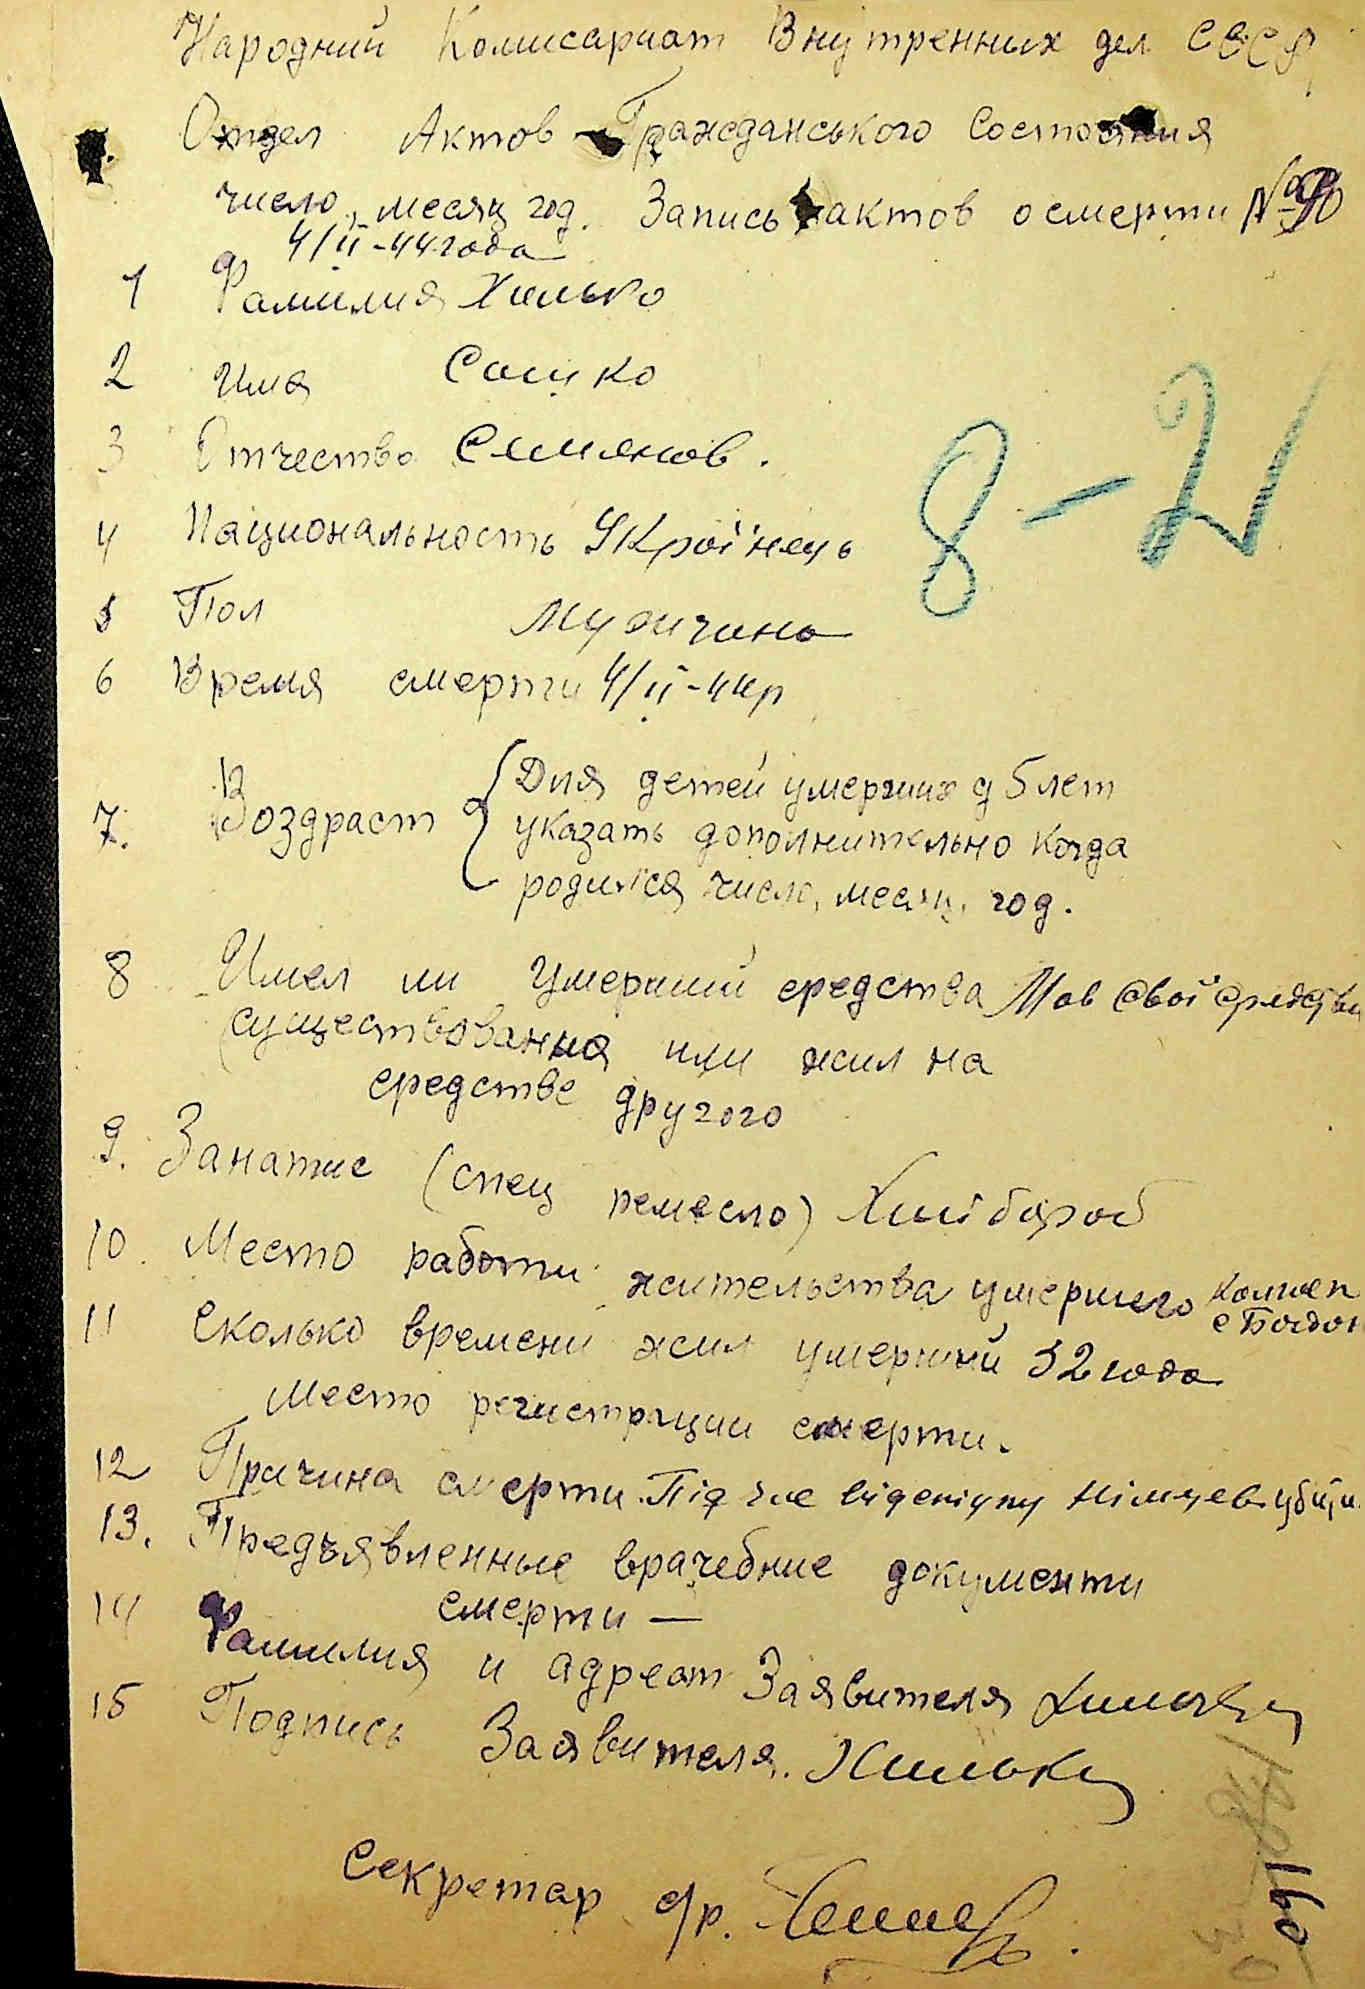 Народний Комисариат Внутренних дел СССР
Отдел Актов Гражданського Состояния
число, месяц год. Запись актов о смерти № 90
4/II-44 года
1 Фамилия Хилько
2 Имя Сашко
3 Отчество Семянов.
4 Национальность Україньць
5 Пол Мужчина
6 Время смерти 4/II-44р
7. Воздраст { Для детей умерших д 5 лет
указать дополнительно когда
родился число, месяц, год.
8 Имел ли Умерший средства Мав свої средства
существования или жил на
средстве другого
9. Занатие (спец ремесло) Хлібороб
10. Место работи жительства умершего
11 Сколько времени жил умерший 32 года
место регистрации смерти.
12 Причина смерти. Під час відступу німцев
13. Предъявленные врачебние документи
смерти —
14 Фамилия и адреат Заявителя
15 Подпись Заявителя.
Секретар с/р.
8-2
160